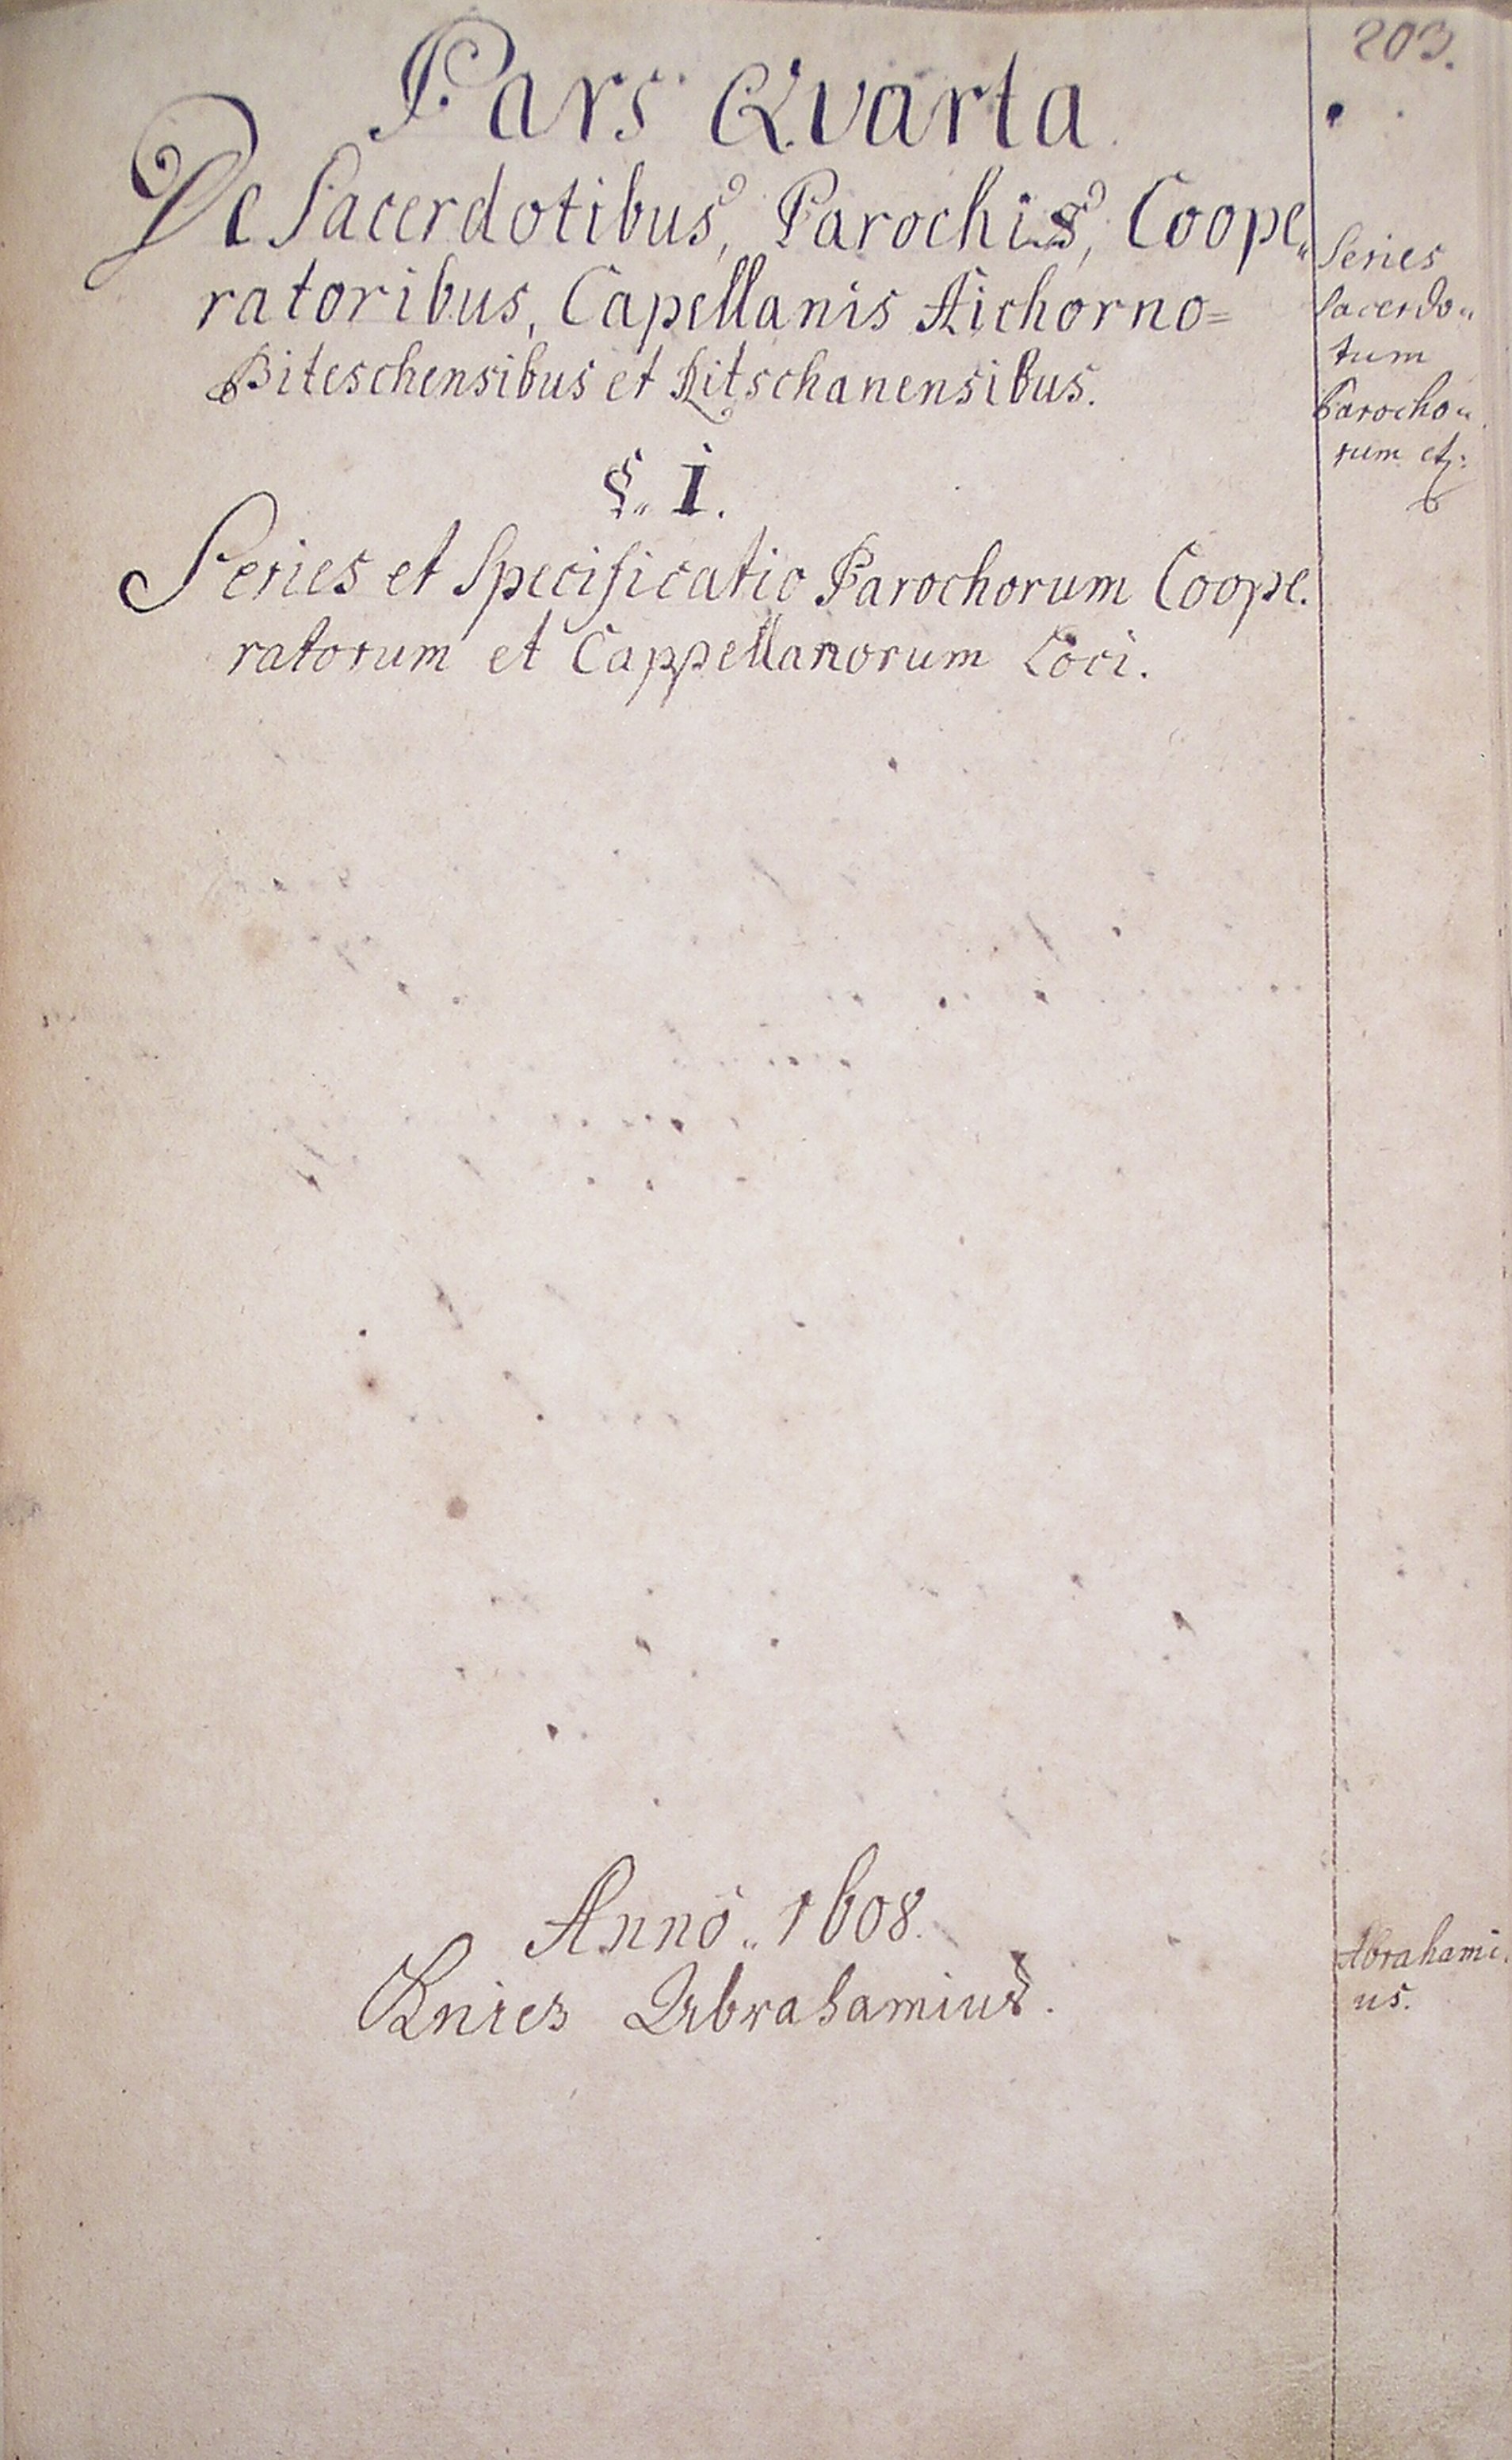 203.
Pars Qvarta
De Sacerdotibus, Parochis, Coope„
ratoribus, Capellanis Aichorno=
Biteschensibus et Ritschanensibus.
§. I.
Series et Specificatio Parochorum Coope.
ratorum et Cappellanorum Loci.
Series
Sacerdo„
tum
Parocho„
rum etc:
Anno. 1608.
Kniez Abrahamius.
Abrahami.
us.